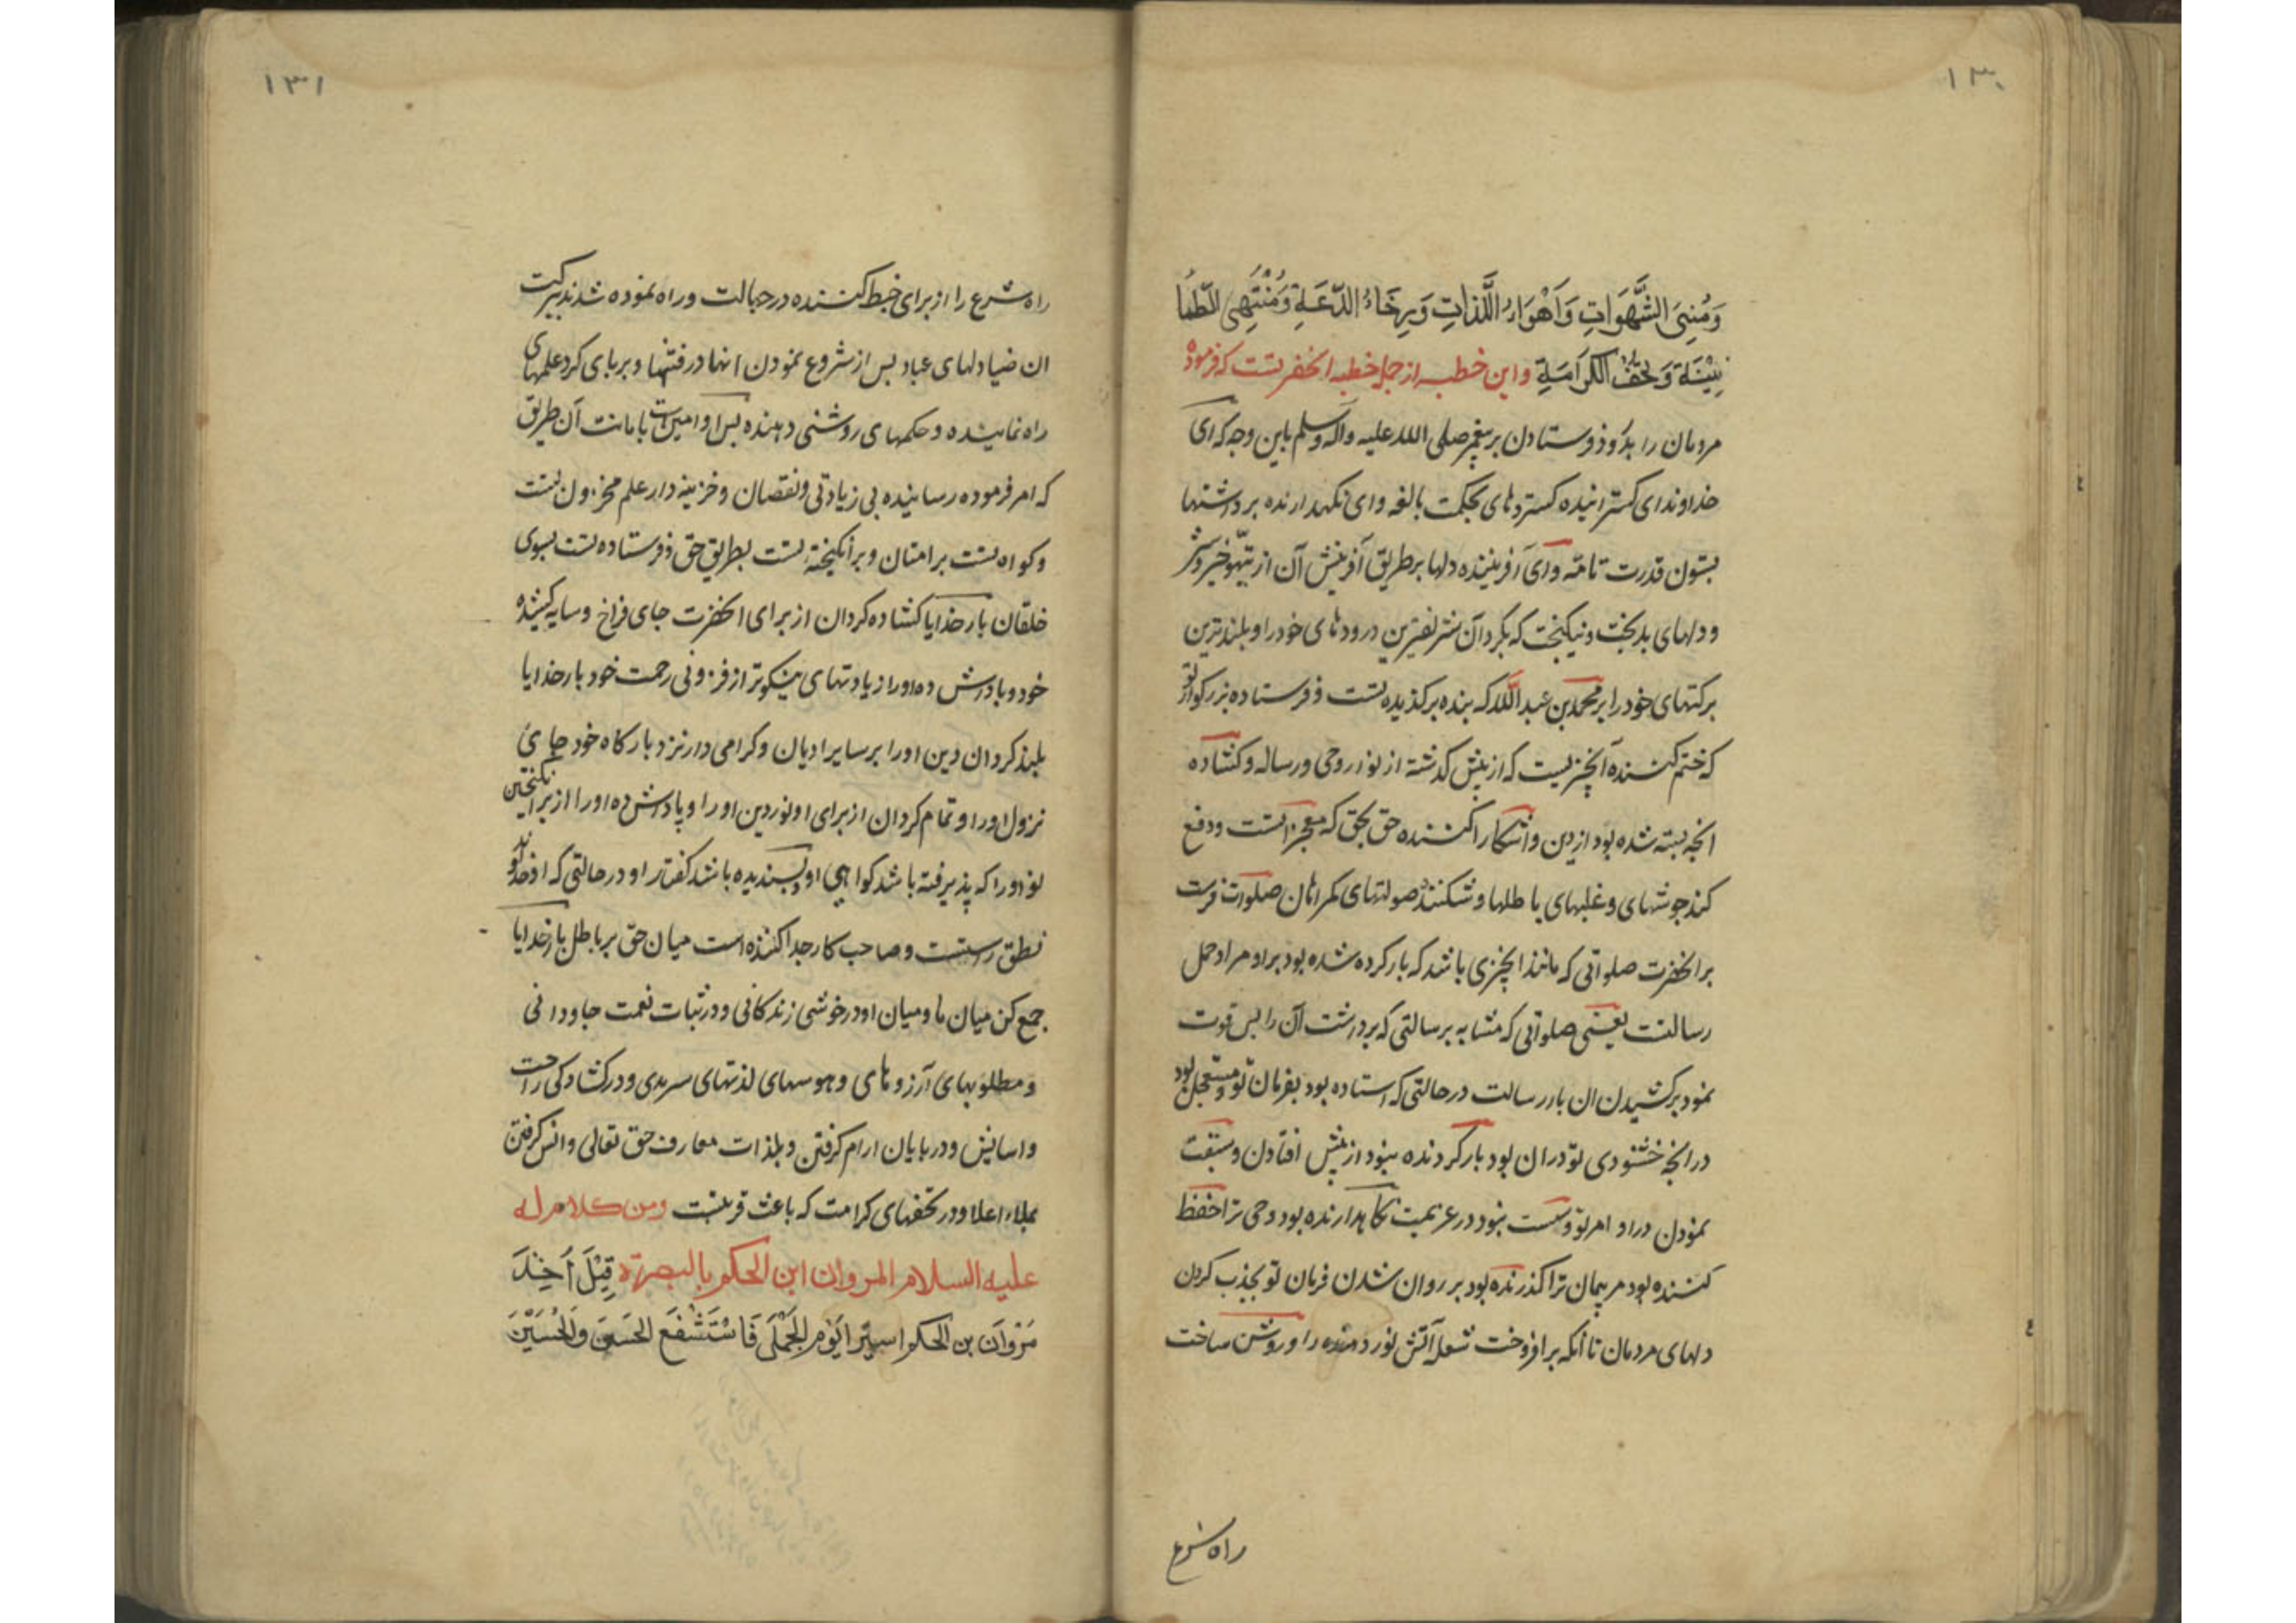 ۱۳۰
وَمُنَی الشَّهَوَاتِ وَاَهْوَاءِ اللَّذَاتِ وَرِخَاءُ الدَّعَةِ وَمُنْتَهِی الطُّمَا
نِیْنَةِ وَتُحَفُ الْکَرَامَةِ واین خطبه از جمله خطبه انحضرتست که فرمود
مردمان را بدرود فرستادن بر پیغمبر صلی الله علیه وآله وسلم باین وجه که ای
خداوند ای کسترانیده کستردهای بحکمت بالغه وای نکهدارنده برداشتها
بستون قدرت تامه وای آفریننده دلها بر طریق آفرینش آن از تهیؤ خیر و شر
ودلهای بدبخت ونیکبخت که بکردان شریفترین درودهای خود را وبلندترین
برکتهای خود را بر محمد بن عبد الله که بنده برکذیده تست وفرستاده بزرکوار تو
که ختم کننده آنچیزیست که از پیش کدشته از نوار وحی ورساله وکشاده
انچه بسته شده بود از دین وآشکارا کننده حق بحق که معجزاتست ودفع
کند جوشهای وغلبهای باطلها وشکننده صولتهای کمراهان صلوات فرست
بر انحضرت صلواتی که مانند انچیزی باشد که بار کرده شده بود براو مر او حمل
رسالت یعنی صلواتی که مشابه برسالتی که برداشت آن را پس قوت
نمود برکشیدن ان بار رسالت در حالتی که استاده بود بفرمان تو ومستعجل بود
در انچه خشنودی تو در ان بود بار کردنده نبود از پیش افتادن وسبقت
نمودن در او امر تو وسست نبود در عزیمت نکاهدارنده بود وحی ترا حفظ
کننده بود مر پیمان ترا کذرنده بود بر روان شدن فرمان تو بجذب کردن
دلهای مردمان تا آنکه برافروخت شعله آتش نور دهنده را وروشن ساخت
راه شرع
۱۳۱
راه شرع را از برای خبط کننده در جهالت وراه نموده شدند ببرکت
ان ضیا دلهای عباد پس از شروع نمودن انها در فتنها وبربای کرد علمهای
راه نماینده وحکمهای روشنی دهنده پس او امین تست بامانت آن طریق
که امر فرموده رساینده بی زیادتی ونقصان وخزینه دار علم مخزون تست
وکواه تست بر امتان وبرانکیخته تست بطریق حق وفرستاده تست بسوی
خلقان بار خدایا کشاده کردان از برای انحضرت جای فراخ وسایه کشیده
خود وپاداش ده او را زیادتهای نیکوتر از فزونی رحمت خود بار خدایا
بلند کردان دین او را بر سایر ادیان وکرامی دار نزد بارکاه خود جای
نزول او را وتمام کردان از برای او نور دین او را وپاداش ده او را از برانکیختن
تو او را که پذیرفته باشد کواهی او وپسندیده باشد کفتار او در حالتی که او خداوند
نطق راستست وصاحب کار جدا کننده است میان حق بر باطل بار خدایا
جمع کن میان ما ومیان او در خوشی زندکانی ودر ثبات نعمت جاودانی
ومطلوبهای آرزوهای وهوسهای لذتهای سرمدی ودر کشادکی راحت
واسایش ودر بایان ارام کرفتن وبلذات معارف حق تعالی وانس کرفتن
بملاء اعلا ودر تحفهای کرامت که باعث قربتست ومن کلام له
علیه السلام المروان ابن الحکم بالبصرة قِیْلَ اُخِذَ
مَرْوَانَ بن الحکم اسیرًا یَوْمَ الجَمَلِ فَاسْتَشْفَعَ الحَسَنَ وَالحُسَیْنَ